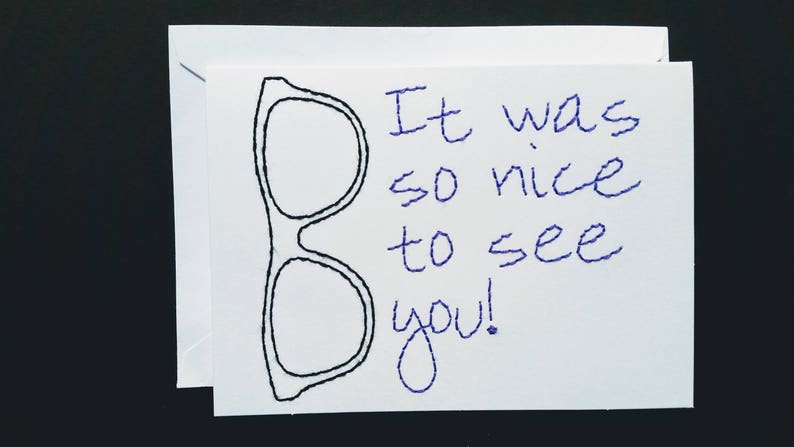 It was
so nice
to see
you!